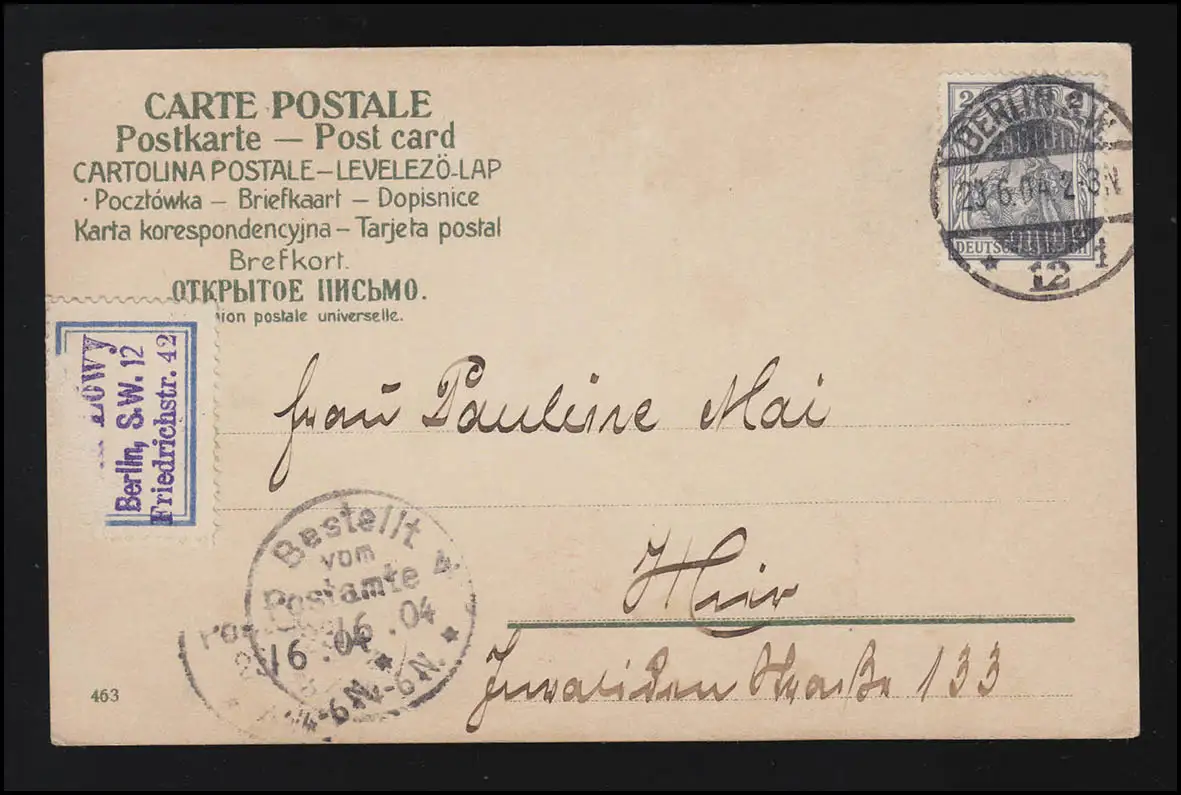 CARTE POSTALE
Postkarte – Post card
CARTOLINA POSTALE – LEVELEZŐ-LAP
· Pocztówka – Briefkaart – Dopisnice
Karta korespondencyjna – Tarjeta postal
Brefkort.
ОТКРЫТОЕ ПИСЬМО.
postale universelle.
2
DEUTSCHES REICH
BERLIN S.W.
23.6.04.2-3N
* 12 1
LÖWY
Berlin, S.W. 12
Friedrichstr. 42
Frau Pauline Mai
Hier
Invaliden Straße 133
Bestellt
vom
Postamte 4
6.04
4-6N.
6.04
4-6N
463